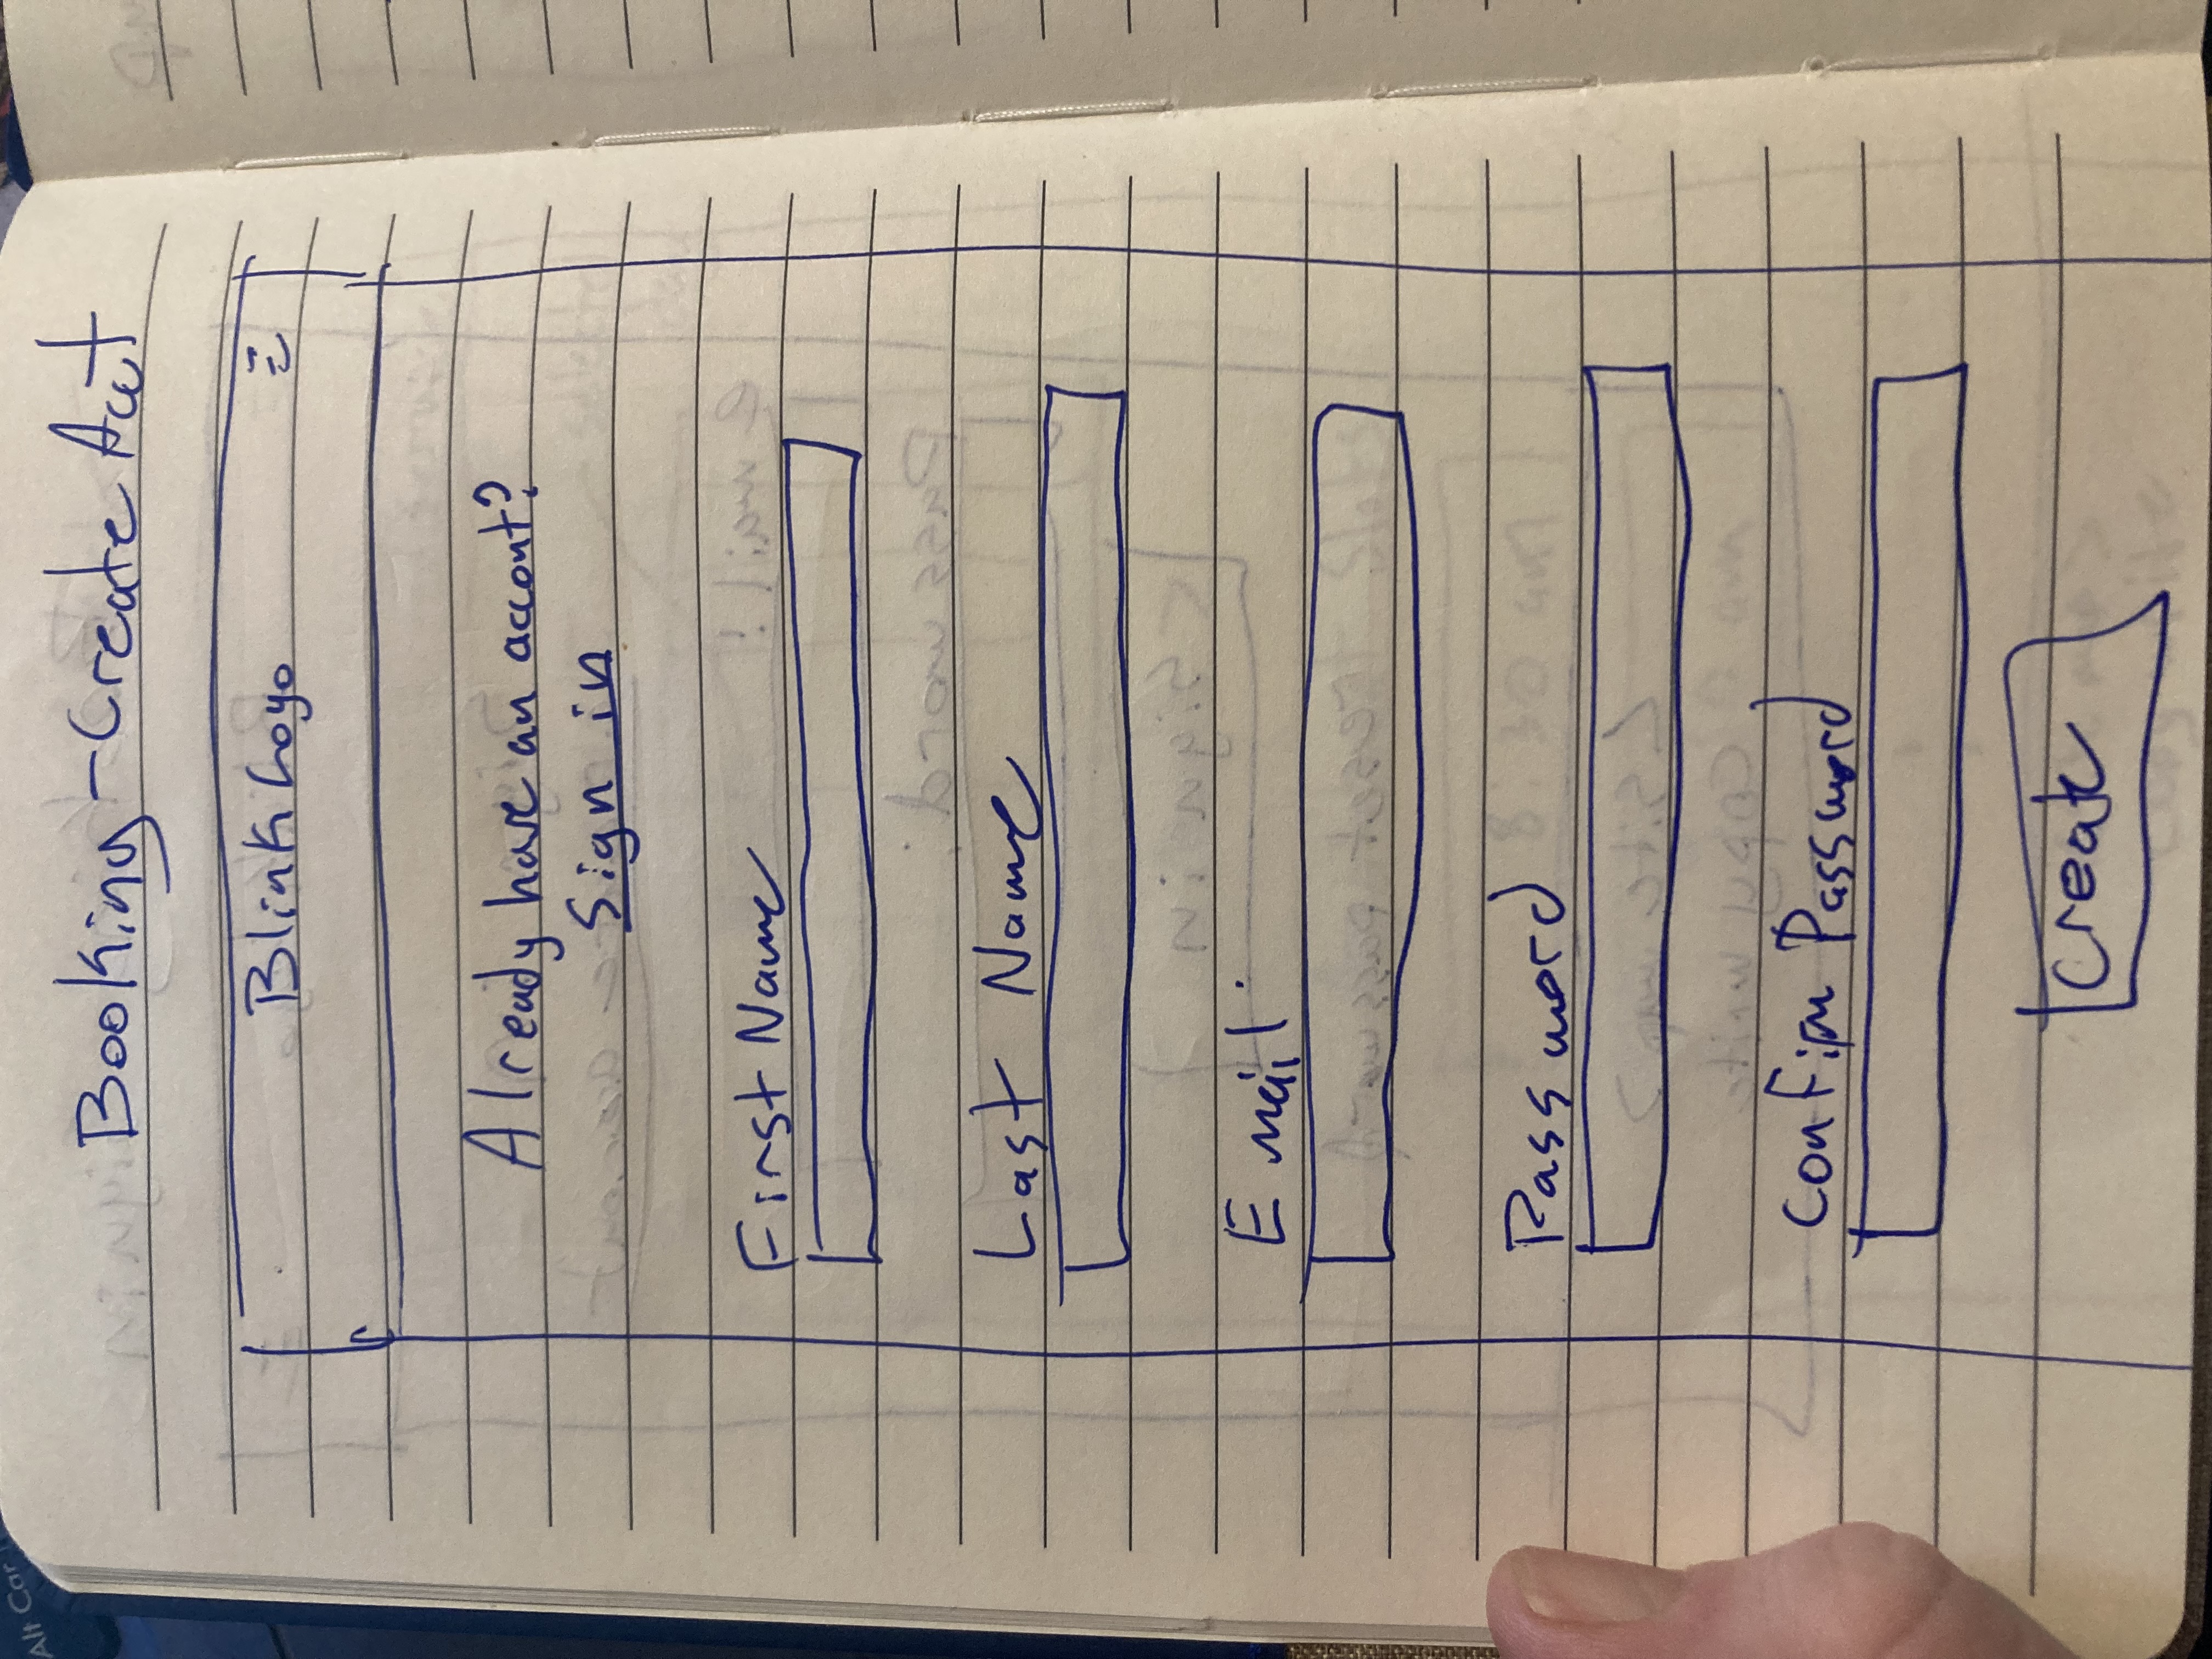 Alt Car
Booking - Create Acct
Blink Logo
Already have an accont?
Sign in
First Name
Last Name
Email
Password
Confirm Password
Create